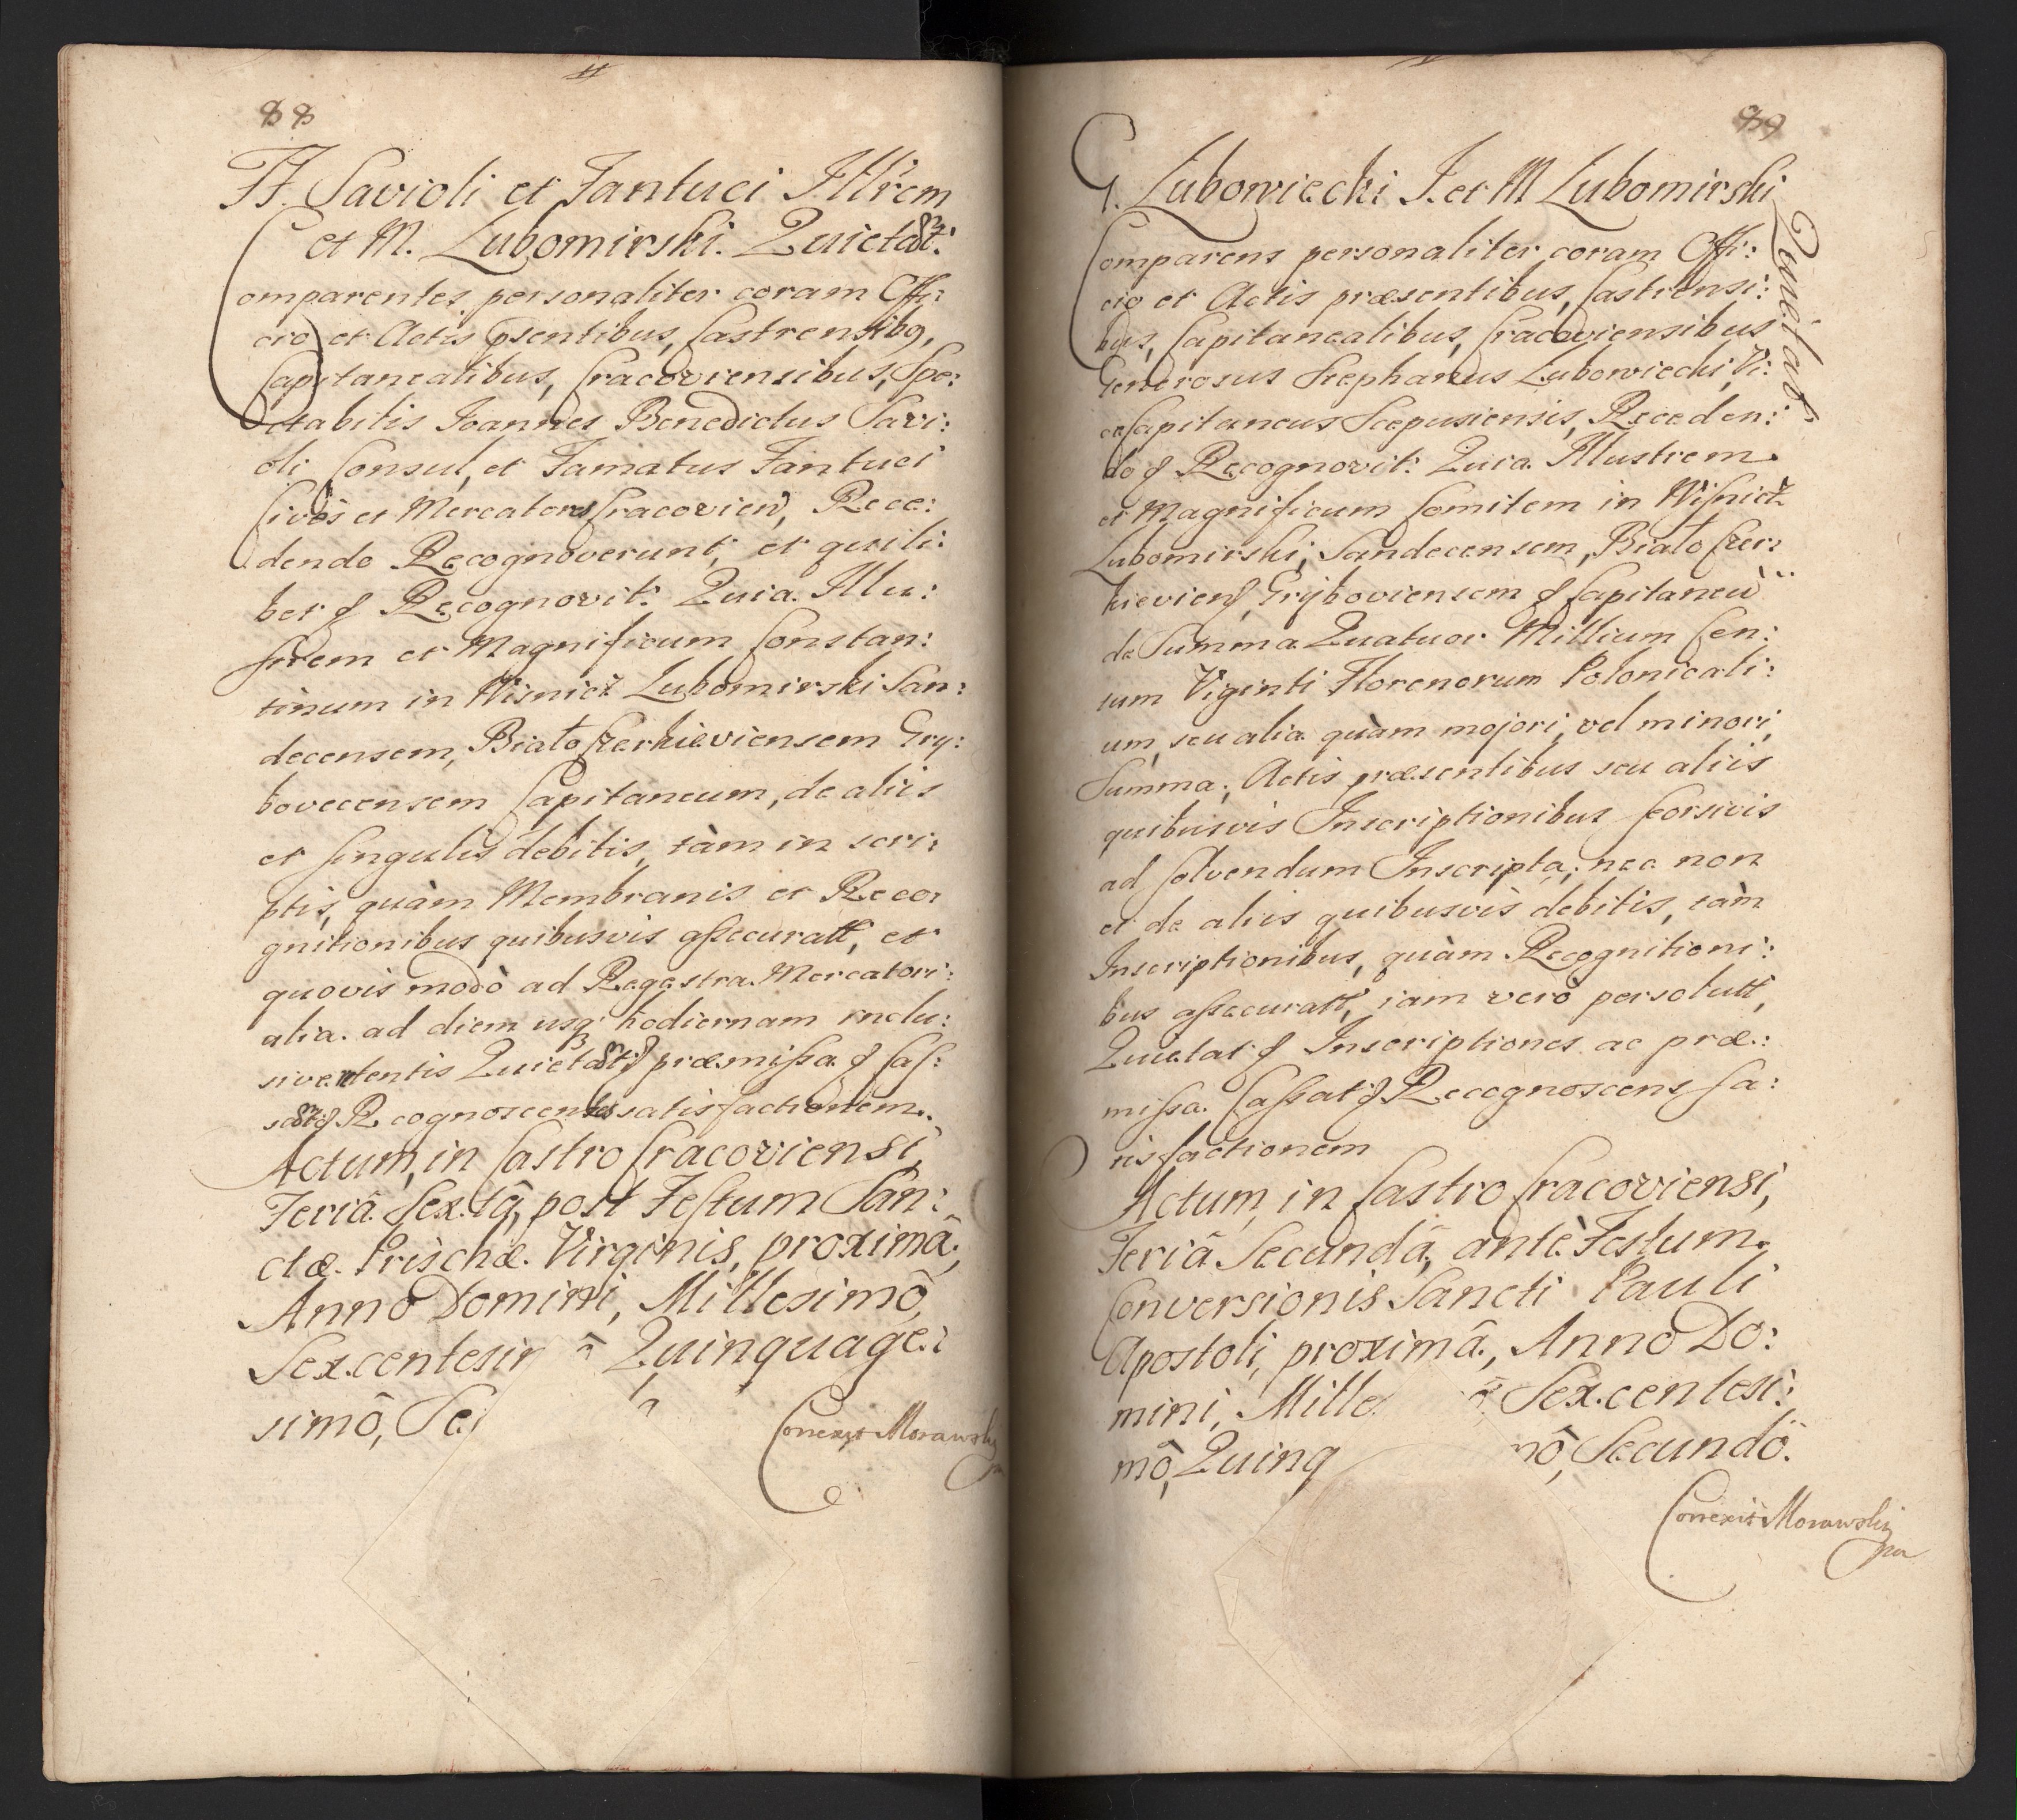 88
FF. Savioli et Fantuci Illrem
et M. Lubomirski. Quietat:
Comparentes personaliter coram Offi:
cio et Actis psentibus, Castrensibq,
Capitanealibus, Cracoviensibus, Spe:
ctabilis Joannes Benedictus Savi:
oli Consul, et Famatus Fantuci
Cives et Mercatores Cracovien, Rece:
dendo Recognoverunt, et quili:
bet Recognovit: Quia Illu:
strem et Magnificum Constan:
tinum in Wisnicz Lubomirski San:
decensem, Biało Czerkieviensem Gry:
bovecensem Capitaneum, de aliis
et singulis debitis, tàm in scri:
ptis, quàm Membranis et Reco:
gnitionibus quibusvis assecuratt, et
quovis modò ad Regestra Mercatori:
alia ad diem usq hodiernam inclu:
sive Quietat præmissa Cas:
Recognoscentes satisfactionem.
Actum, in Castro Cracoviensi,
Feriâ Sextâ, post Festum San:
ctæ Prischæ Virginis, proximâ,
Anno Domini, Millesimô,
Sexcentesim ô Quinquage:
simô, Se
Correxit Morawski
89
G. Lubowiecki I. et M Lubomirski
Quietat
Comparens personaliter coram Offi:
cio et Actis præsentibus, Castrensi:
bus, Capitanealibus, Cracoviensibus
Generosus Stephanus Lubowiecki, Vi:
ceCapitaneus Scepusiensis, Receden:
do Recognovit: Quia Illustrem
et Magnificum Comitem in Wisnicz
Lubomirski, Sandecensem, Biało Czer:
kieviens Gryboviensem Capitaneù
de Summa Quatuor Millium Cen:
tum Viginti Florenorum Polonicali:
um, seu alia quàm majori, vel minori,
Summa, Actis præsentibus seu aliis
quibusvis Inscriptionibus seorsivis
ad solvendum Inscripta, nec non
et de aliis quibusvis debitis, tàm
Inscriptionibus, quàm Recognitioni:
bus assecuratt, iam verò persolutt,
Quietat Inscriptiones ac præ:
missa Cassat Recognoscens sa:
tisfactionem
Actum, in Castro Cracoviensi,
Feriâ Secundâ, antè Festum
Conversionis Sancti Pauli
Apostoli, proximâ, Anno Do:
mini, Mille ô Sexcentesi:
mô, Quinq mô, Secundô.
Correxit Morawski